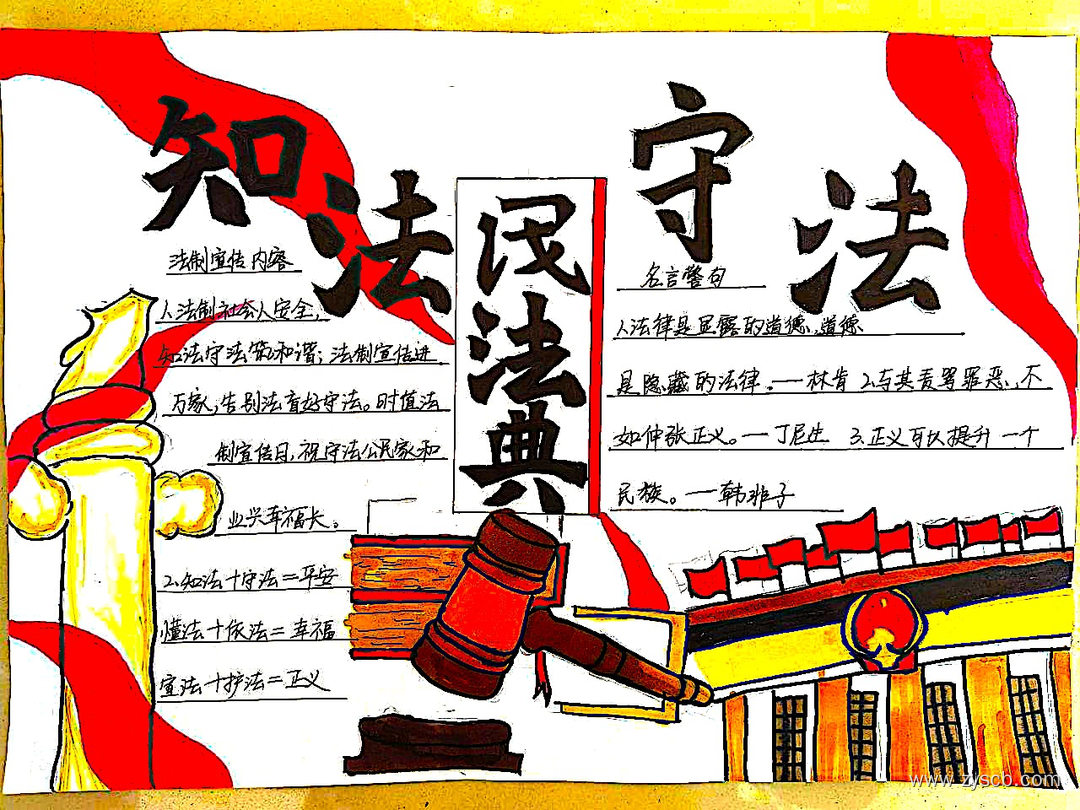 知法
守法
民法典
法制宣传内容
1.法制社会人安全,
知法守法筑和谐;法制宣传进
万家,告别法盲好守法。时值法
制宣传日,祝守法公民家和
业兴幸福长。
2.知法+守法=平安
懂法+依法=幸福
宣法+护法=正义
名言警句
1.法律是显露的道德,道德
是隐藏的法律。——林肯 2.与其责骂罪恶,不
如伸张正义。——丁尼生 3.正义可以提升一个
民族。——韩非子
www.zyscb.com